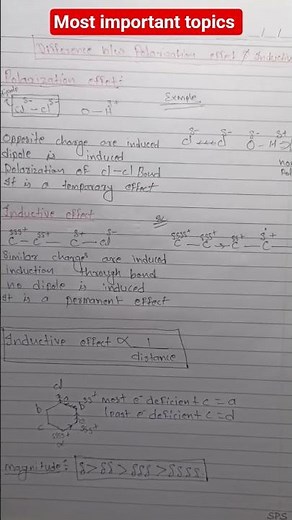 Most important topics
Difference b/w Polarization effect & Inductive
Polarization effect:-
Example
Cl - Cl O - H
Opposite charge are induced
dipole is induced
Polarization of cl-cl Bond
It is a temporary effect
Inductive effect
C - C - C - Cl
Similar charges are induced
Induction through bond
no dipole is induced
It is a permanent effect
Inductive effect ∝ 1
distance
cl
most e⁻ deficient c = a
least e⁻ deficient c = d
magnitude: δ > δδ > δδδ > δδδδ
SPS